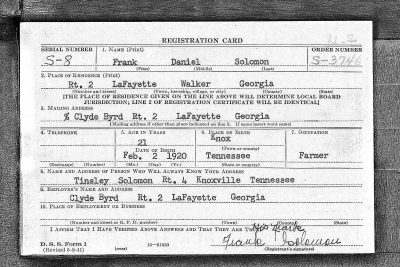 REGISTRATION CARD
SERIAL NUMBER 1. NAME (Print) ORDER NUMBER
S-8 Frank Daniel Solomon
(First) (Middle) (Last)
2. PLACE OF RESIDENCE (Print)
Rt. 2 LaFayette Walker Georgia
(Number and street) (Town, township, village, or city) (County) (State)
[THE PLACE OF RESIDENCE GIVEN ON THE LINE ABOVE WILL DETERMINE LOCAL BOARD
JURISDICTION; LINE 2 OF REGISTRATION CERTIFICATE WILL BE IDENTICAL]
3. MAILING ADDRESS
% Clyde Byrd Rt. 2 LaFayette Georgia
[Mailing address if other than place indicated on line 2. If same insert word same]
4. TELEPHONE 5. AGE IN YEARS 6. PLACE OF BIRTH 7. OCCUPATION
21 Knox
DATE OF BIRTH (Town or county)
Feb. 2 1920 Tennessee Farmer
(Exchange) (Number) (Mo.) (Day) (Yr.) (State or country)
8. NAME AND ADDRESS OF PERSON WHO WILL ALWAYS KNOW YOUR ADDRESS
Tinsley Solomon Rt. 4 Knoxville Tennessee
9. EMPLOYER'S NAME AND ADDRESS
Clyde Byrd Rt. 2 LaFayette Georgia
10. PLACE OF EMPLOYMENT OR BUSINESS
(Number and street or R. F. D. number) (Town) (County) (State)
I AFFIRM THAT I HAVE VERIFIED ABOVE ANSWERS AND THAT THEY ARE
His mark
D. S. S. Form 1 Frank Solomon
(Revised 6-9-41) (over) (Registrant's signature)